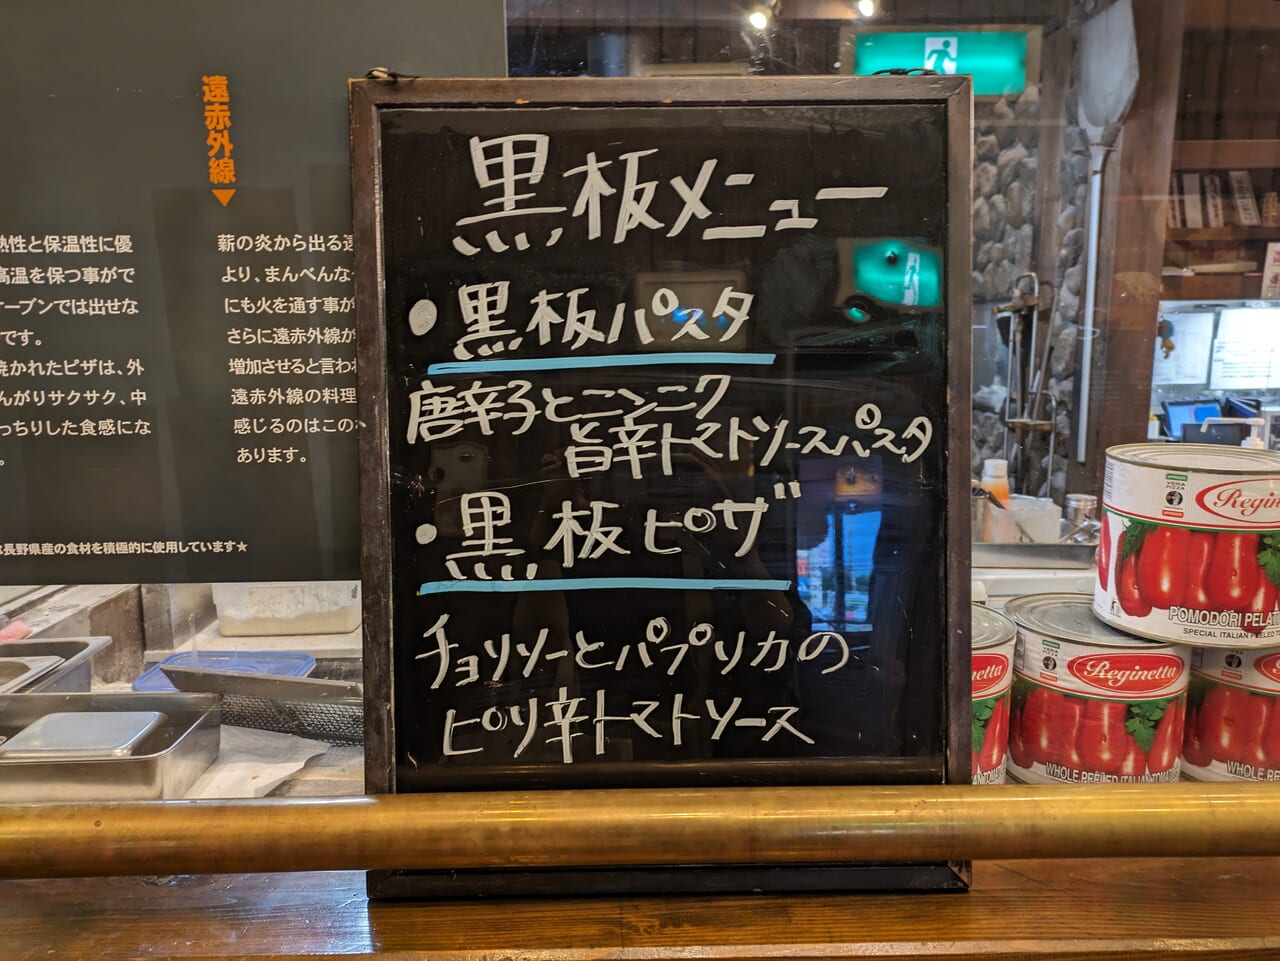 黒板メニュー
・黒板パスタ
唐辛子とニンニク
旨辛トマトソースパスタ
・黒板ピザ
チョリソーとパプリカの
ピリ辛トマトソース
遠赤外線▼
薪の炎から出る遠
より、まんべんな
にも火を通す事が
さらに遠赤外線が
増加させると言われ
遠赤外線の料理
感じるのはこの
あります。
熱性と保温性に優
高温を保つ事がで
オーブンでは出せな
です。
焼かれたピザは、外
んがりサクサク、中
っちりした食感にな
。
長野県産の食材を積極的に使用しています★
VERA PIZZA
Regin
POMODORI PELAT
SPECIAL ITALIAN PEELED
Reginetta
WHOLE PEELED ITALIAN TOMATO
netta
WHOLE PEE